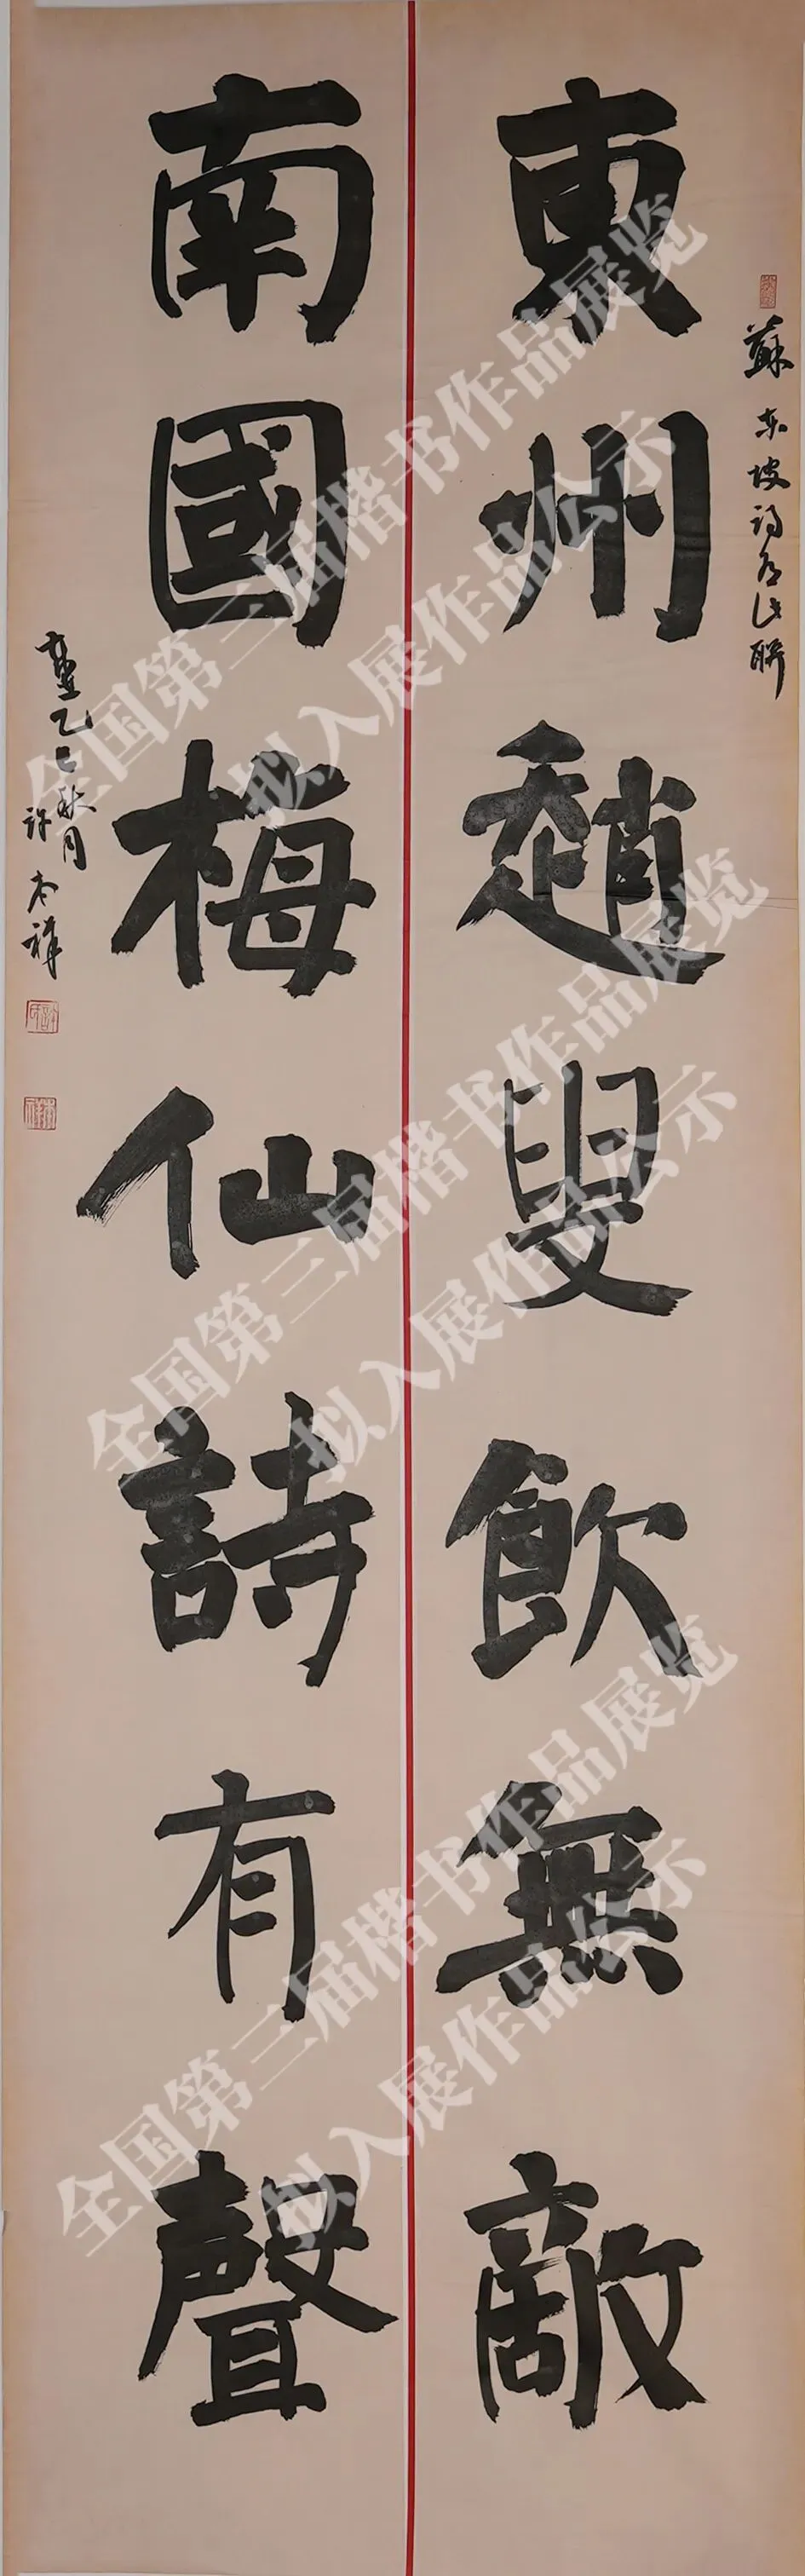 蘇東坡詩有此聯
東州趙叟飲無敵
南國梅仙詩有聲
乙巳秋月
許 祥
全国第三届楷书作品展览
拟入展作品公示
全国第三届楷书作品展览
拟入展作品公示
全国第三届楷书作品展览
拟入展作品公示